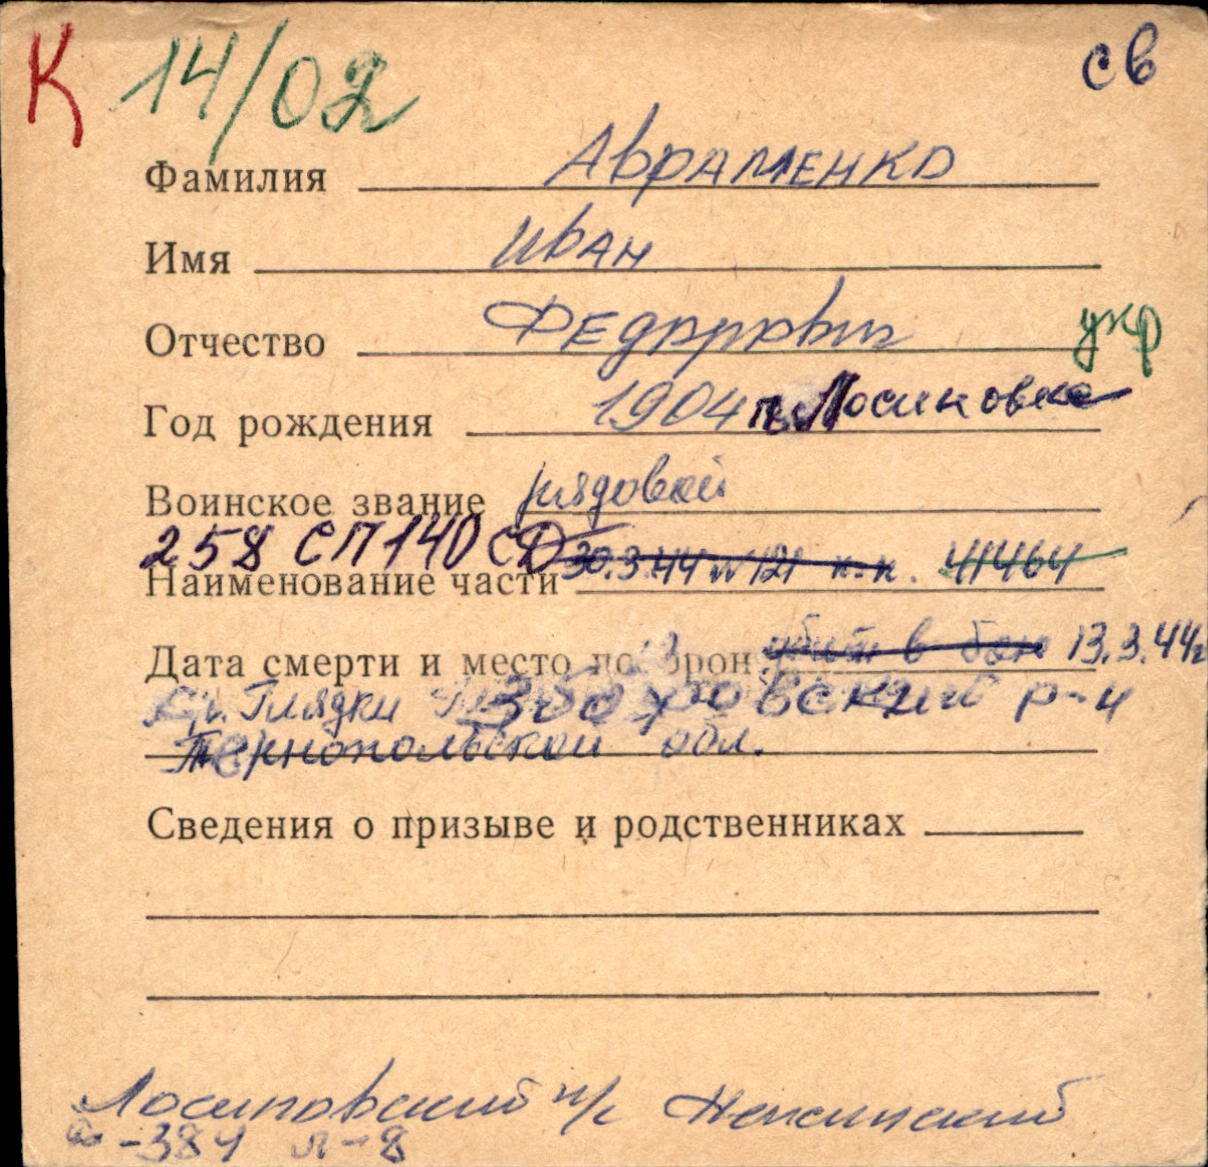 К 14/02 св
Фамилия Авраменко
Имя Иван
Отчество Федорович укр
Год рождения 1904 Лосиновка
Воинское звание рядовой
258 СП 140 СД 30.3.44 п.п. 41464
Наименование части
Дата смерти и место похорон. убит в бою 13.3.44г
Глядки Зборовский р-н
Тернопольской обл.
Сведения о призыве и родственниках
Лосиновский Нежинский
-384 л-8